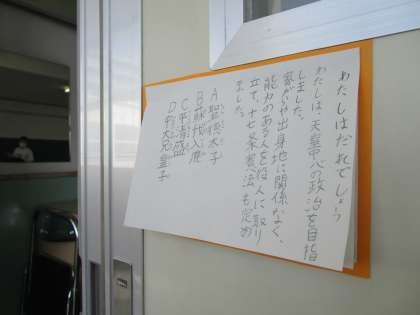 わたしはだれでしょう
わたしは、天皇中心の政治を目指
しました。
家がらや出身地に関係なく、
能力のある人を役人に取り
立て、十七条憲法も定め
ました。
A 聖徳太子
B 蘇我入鹿
C 平清盛
D 中大兄皇子